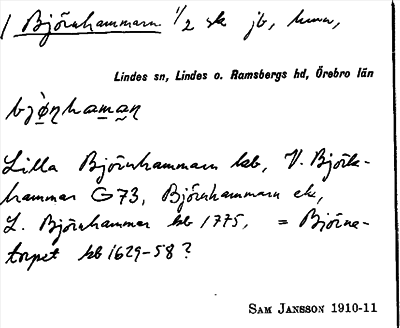 / Björnhammarn 1/2 sk jb, hmn,
Lindes sn, Lindes o. Ramsbergs hd, Örebro län
bjø̀ṇhamaṇ
Lilla Björnhammarn lsb, V. Björk-
hammar G 73, Björnhammarn ek,
L. Björnhammar kb 1775, = Björne-
torpet kb 1629-58?
SAM JANSSON 1910-11